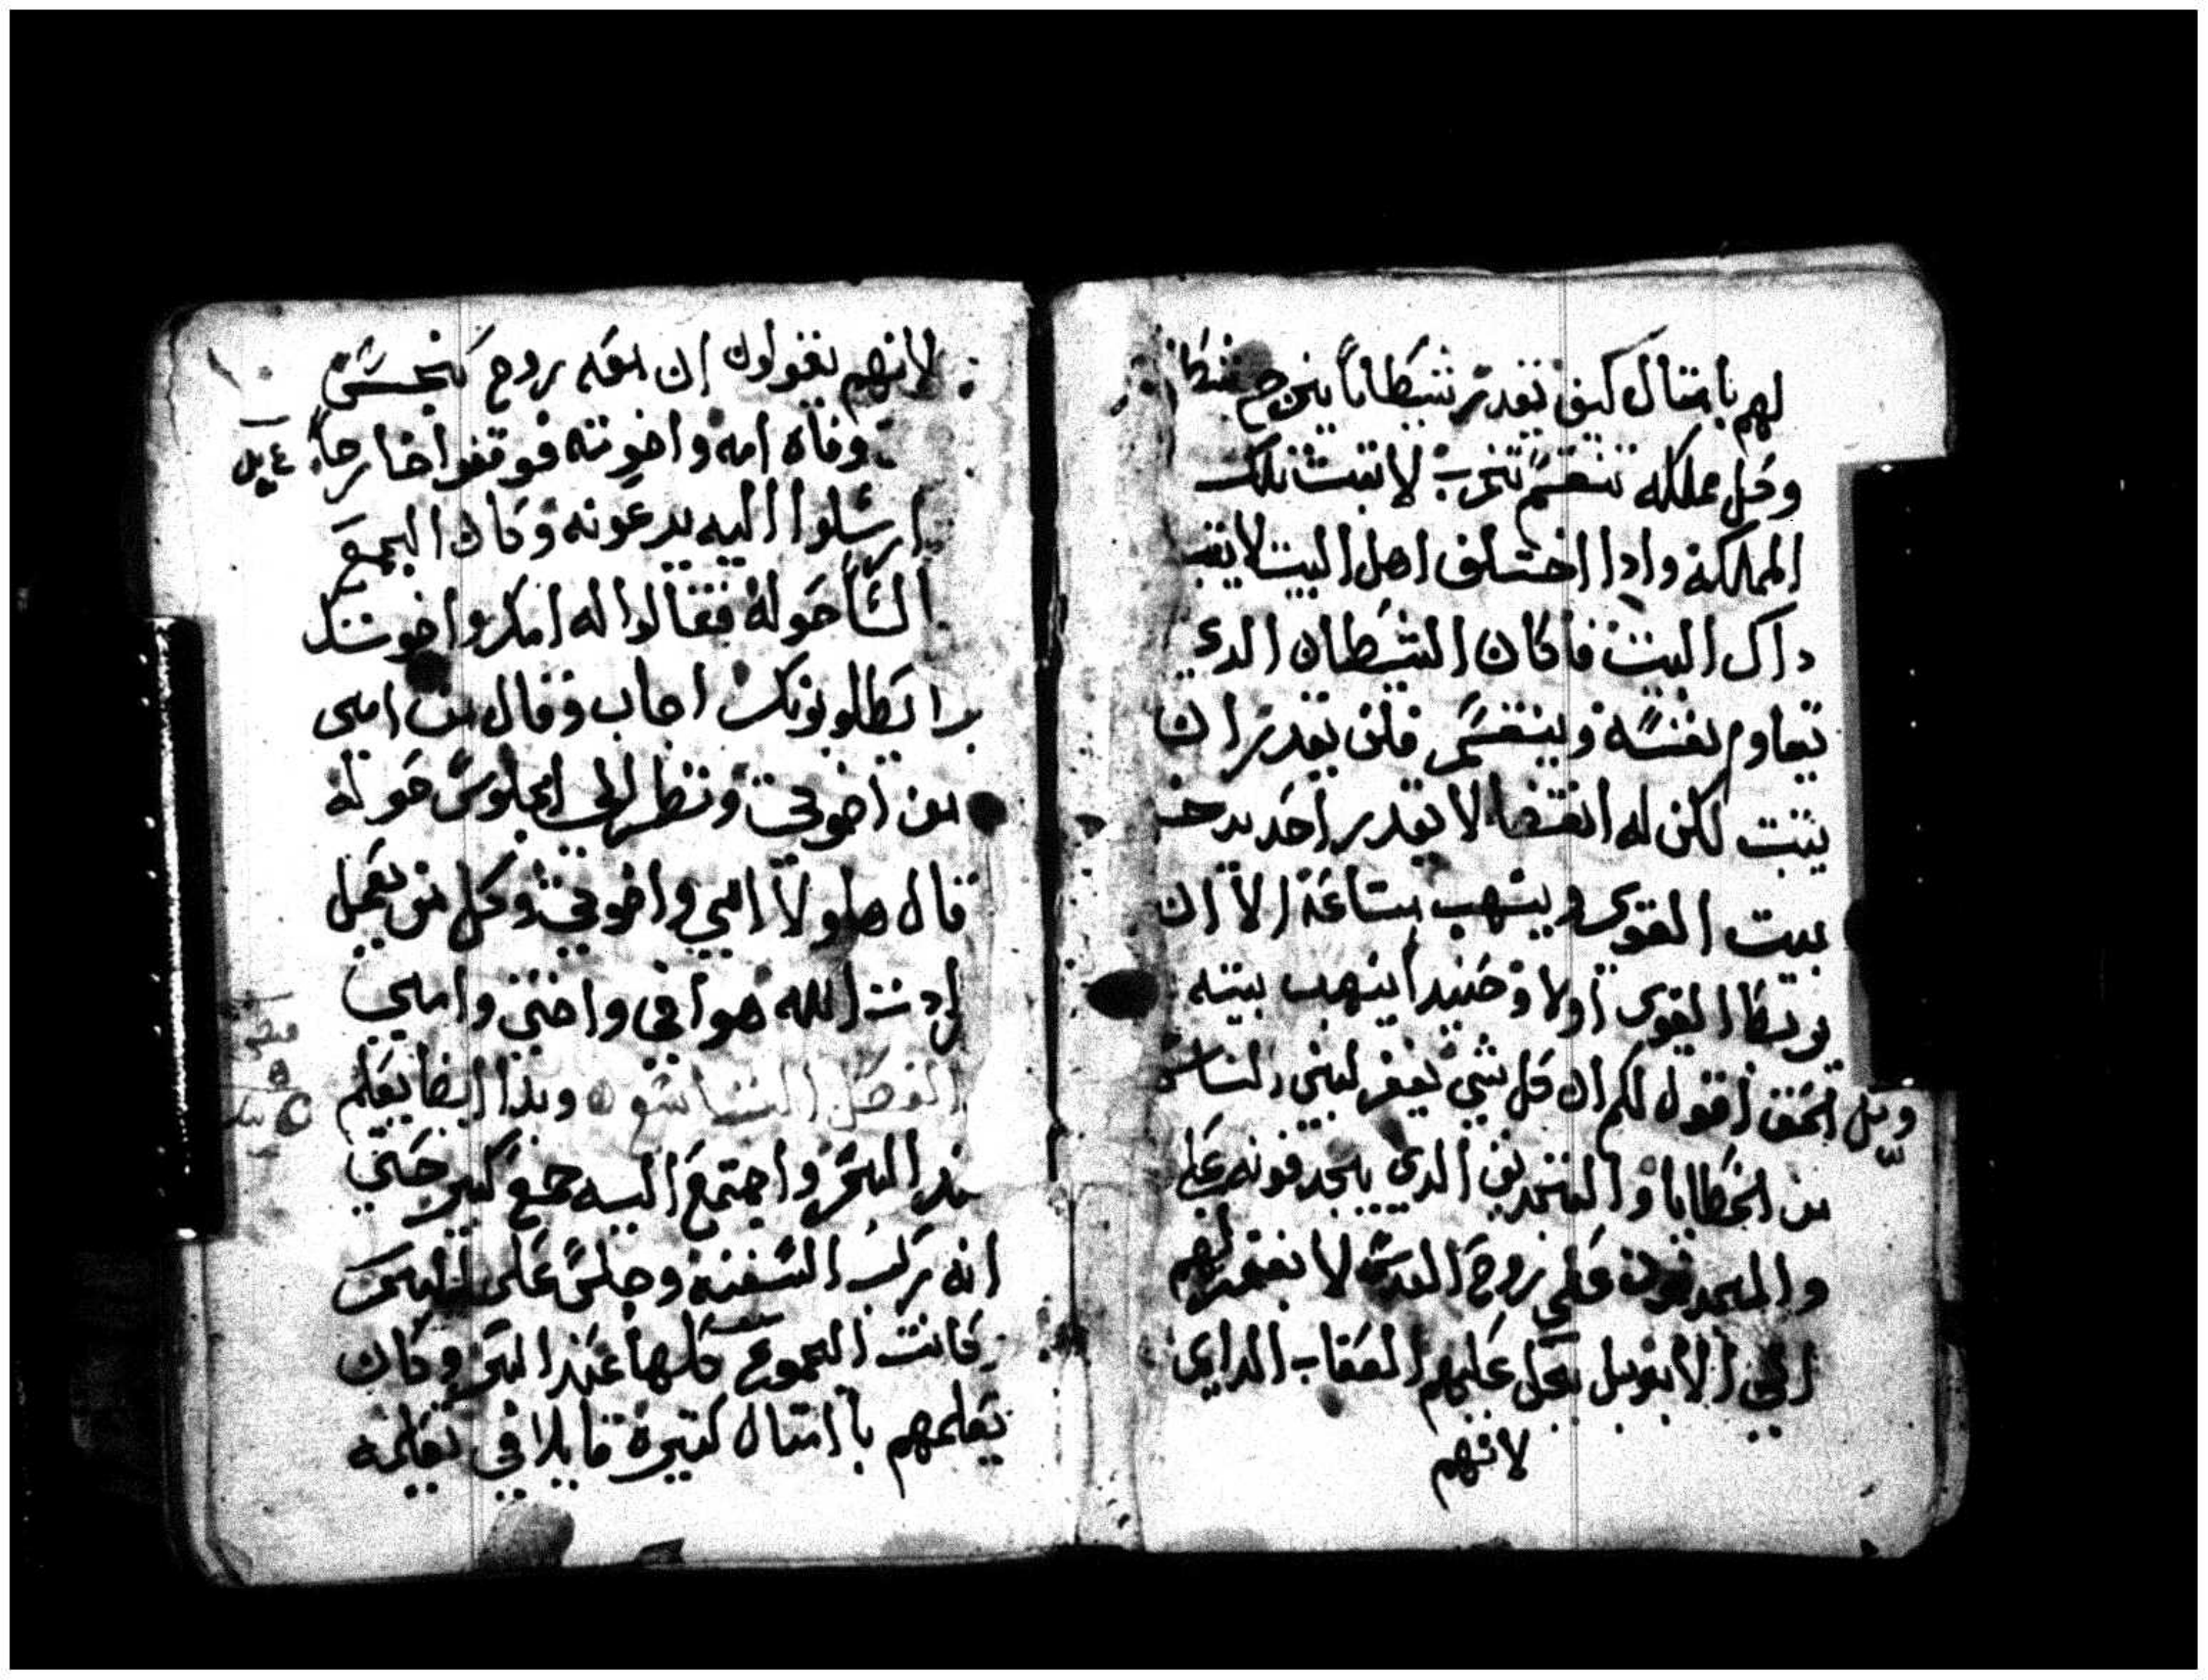 لهم بامتال كيف يقدر شيطاناً يخرج شيطا
وكل مملكه تنقسم تخرب لا تتبت تلك
المملكة وادا اختلف اهل البيت لا يتبت
داك البيت فاكان الشيطان الدي
يقاوم نفسه وينقسم فلن يقدر ان
يتبت لكن له انقضا لا يقدر احد يدخل
بيت القوي وينهب متاعه الا ان
يربط القوي اولا وحنيدا ينهب بيته
الحق اقول لكم ان كل شي يغفر لبني الناس
من الخطايا والتجديف الدي يجدفونه على
والمجدفون على روح القدس لا يغفر لهم
الي الا بل تحل عليهم العقاب الدايم
لانهم
لانهم يقولون ان معه روح نجس
وفاه امه واخوته فوقفوا خارجاً
ارسلوا اليه يدعونه وكان الجمع
حوله فقالوا له امك واخوتك
برا يطلبونك اجاب وقال من امي
من اخوتي ونظر الي الجلوس حوله
قال هاولا امي واخوتي وكل من يعمل
ارادت الله هو اخي واختي وامي
الفصل وبدا ايضا يعلم
عند البحر واجتمع اليه جمع كبير حتي
انه ركب السفينه وجلس على البحر
كانت الجموع كلها عند البحر وكان
يعلمهم باامتال كتيرة قايلا في تعليمه